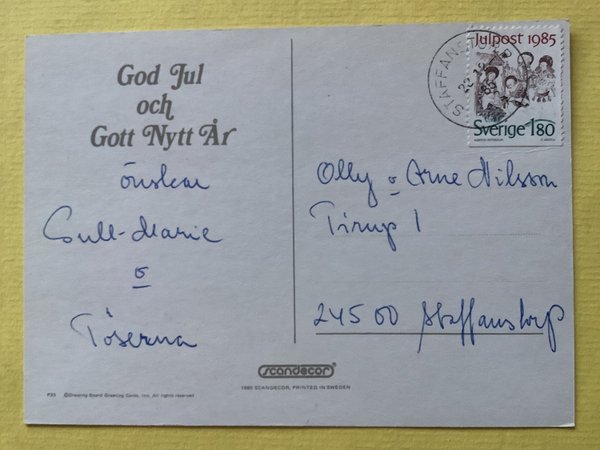 God Jul
och
Gott Nytt År
önskar
Gull-Marie
o
Töserna
scandecor
1985 SCANDECOR, PRINTED IN SWEDEN
©Drawing Board Greeting Cards, Inc. All rights reserved
STAFFANSTORP
Julpost 1985
Sverige 1.80
Olly o Arne Nilsson
Tirup 1
245 00 Staffanstorp